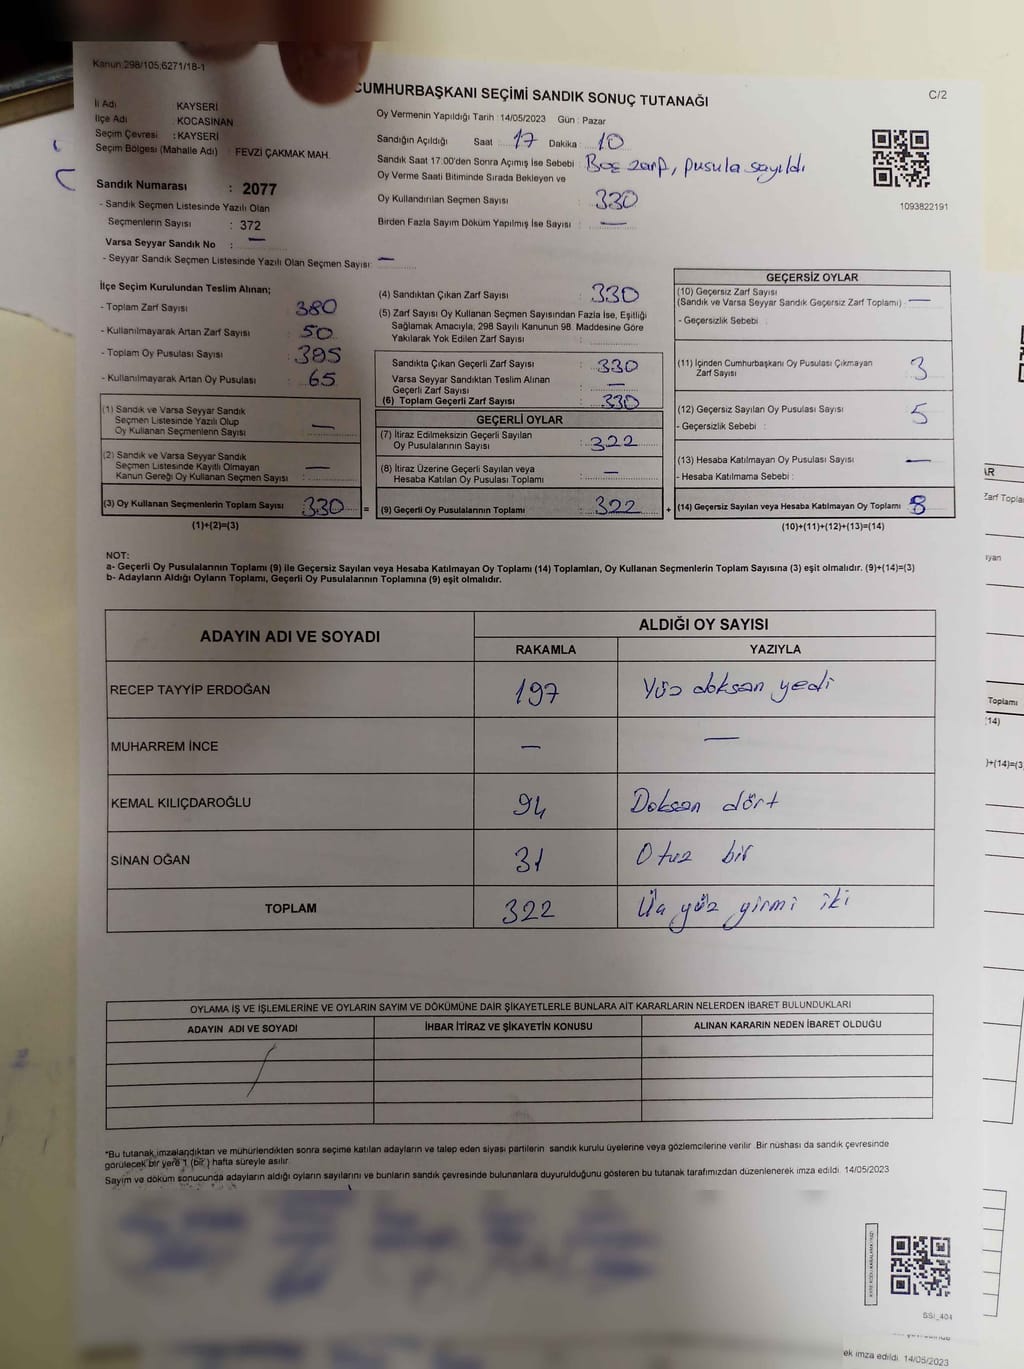 Kanun:298/105;6271/18-1
CUMHURBAŞKANI SEÇİMİ SANDIK SONUÇ TUTANAĞI
C/2
İl Adı KAYSERİ
İlçe Adı : KOCASİNAN
Seçim Çevresi : KAYSERİ
Seçim Bölgesi (Mahalle Adı) : FEVZİ ÇAKMAK MAH.
Sandık Numarası : 2077
- Sandık Seçmen Listesinde Yazılı Olan
Seçmenlerin Sayısı : 372
Varsa Seyyar Sandık No : —
- Seyyar Sandık Seçmen Listesinde Yazılı Olan Seçmen Sayısı: —
Oy Vermenin Yapıldığı Tarih : 14/05/2023 Gün : Pazar
Sandığın Açıldığı Saat 17 Dakika : 10
Sandık Saat 17:00'den Sonra Açımış İse Sebebi : Boş zarf, pusula sayıldı
Oy Verme Saati Bitiminde Sırada Bekleyen ve
Oy Kullandırılan Seçmen Sayısı : 330
Birden Fazla Sayım Döküm Yapılmış İse Sayısı : —
1093822191
İlçe Seçim Kurulundan Teslim Alınan;
- Toplam Zarf Sayısı : 380
- Kullanılmayarak Artan Zarf Sayısı : 50
- Toplam Oy Pusulası Sayısı : 395
- Kullanılmayarak Artan Oy Pusulası : 65
(1) Sandık ve Varsa Seyyar Sandık
Seçmen Listesinde Yazılı Olup
Oy Kullanan Seçmenlerin Sayısı : —
(2) Sandık ve Varsa Seyyar Sandık
Seçmen Listesinde Kayıtlı Olmayan
Kanun Gereği Oy Kullanan Seçmen Sayısı : —
(3) Oy Kullanan Seçmenlerin Toplam Sayısı 330 =
(1)+(2)=(3)
(4) Sandıktan Çıkan Zarf Sayısı : 330
(5) Zarf Sayısı Oy Kullanan Seçmen Sayısından Fazla İse, Eşitliği
Sağlamak Amacıyla, 298 Sayılı Kanunun 98. Maddesine Göre
Yakılarak Yok Edilen Zarf Sayısı :
Sandıkta Çıkan Geçerli Zarf Sayısı : 330
Varsa Seyyar Sandıktan Teslim Alınan
Geçerli Zarf Sayısı : —
(6) Toplam Geçerli Zarf Sayısı : 330
GEÇERLİ OYLAR
(7) İtiraz Edilmeksizin Geçerli Sayılan
Oy Pusulalarının Sayısı : 322
(8) İtiraz Üzerine Geçerli Sayılan veya
Hesaba Katılan Oy Pusulası Toplamı : —
(9) Geçerli Oy Pusulalarının Toplamı : 322 +
GEÇERSİZ OYLAR
(10) Geçersiz Zarf Sayısı
(Sandık ve Varsa Seyyar Sandık Geçersiz Zarf Toplamı) : —
- Geçersizlik Sebebi :
(11) İçinden Cumhurbaşkanı Oy Pusulası Çıkmayan
Zarf Sayısı 3
(12) Geçersiz Sayılan Oy Pusulası Sayısı : 5
- Geçersizlik Sebebi :
(13) Hesaba Katılmayan Oy Pusulası Sayısı : —
- Hesaba Katılmama Sebebi :
(14) Geçersiz Sayılan veya Hesaba Katılmayan Oy Toplamı : 8
(10)+(11)+(12)+(13)=(14)
NOT:
a- Geçerli Oy Pusulalarının Toplamı (9) ile Geçersiz Sayılan veya Hesaba Katılmayan Oy Toplamı (14) Toplamları, Oy Kullanan Seçmenlerin Toplam Sayısına (3) eşit olmalıdır. (9)+(14)=(3)
b- Adayların Aldığı Oyların Toplamı, Geçerli Oy Pusulalarının Toplamına (9) eşit olmalıdır.
ADAYIN ADI VE SOYADI
ALDIĞI OY SAYISI
RAKAMLA YAZIYLA
RECEP TAYYİP ERDOĞAN 197 Yüz doksan yedi
MUHARREM İNCE — —
KEMAL KILIÇDAROĞLU 94 Doksan dört
SİNAN OĞAN 31 Otuz bir
TOPLAM 322 Üç yüz yirmi iki
OYLAMA İŞ VE İŞLEMLERİNE VE OYLARIN SAYIM VE DÖKÜMÜNE DAİR ŞİKAYETLERLE BUNLARA AİT KARARLARIN NELERDEN İBARET BULUNDUKLARI
ADAYIN ADI VE SOYADI İHBAR İTİRAZ VE ŞİKAYETİN KONUSU ALINAN KARARIN NEDEN İBARET OLDUĞU
*Bu tutanak imzalandıktan ve mühürlendikten sonra seçime katılan adayların ve talep eden siyasi partilerin sandık kurulu üyelerine veya gözlemcilerine verilir. Bir nüshası da sandık çevresinde
görülecek bir yere 1 (bir) hafta süreyle asılır.
Sayım ve döküm sonucunda adayların aldığı oyların sayılarını ve bunların sandık çevresinde bulunanlara duyurulduğunu gösteren bu tutanak tarafımızdan düzenlenerek imza edildi. 14/05/2023
SSİ_404
ek imza edildi. 14/05/2023